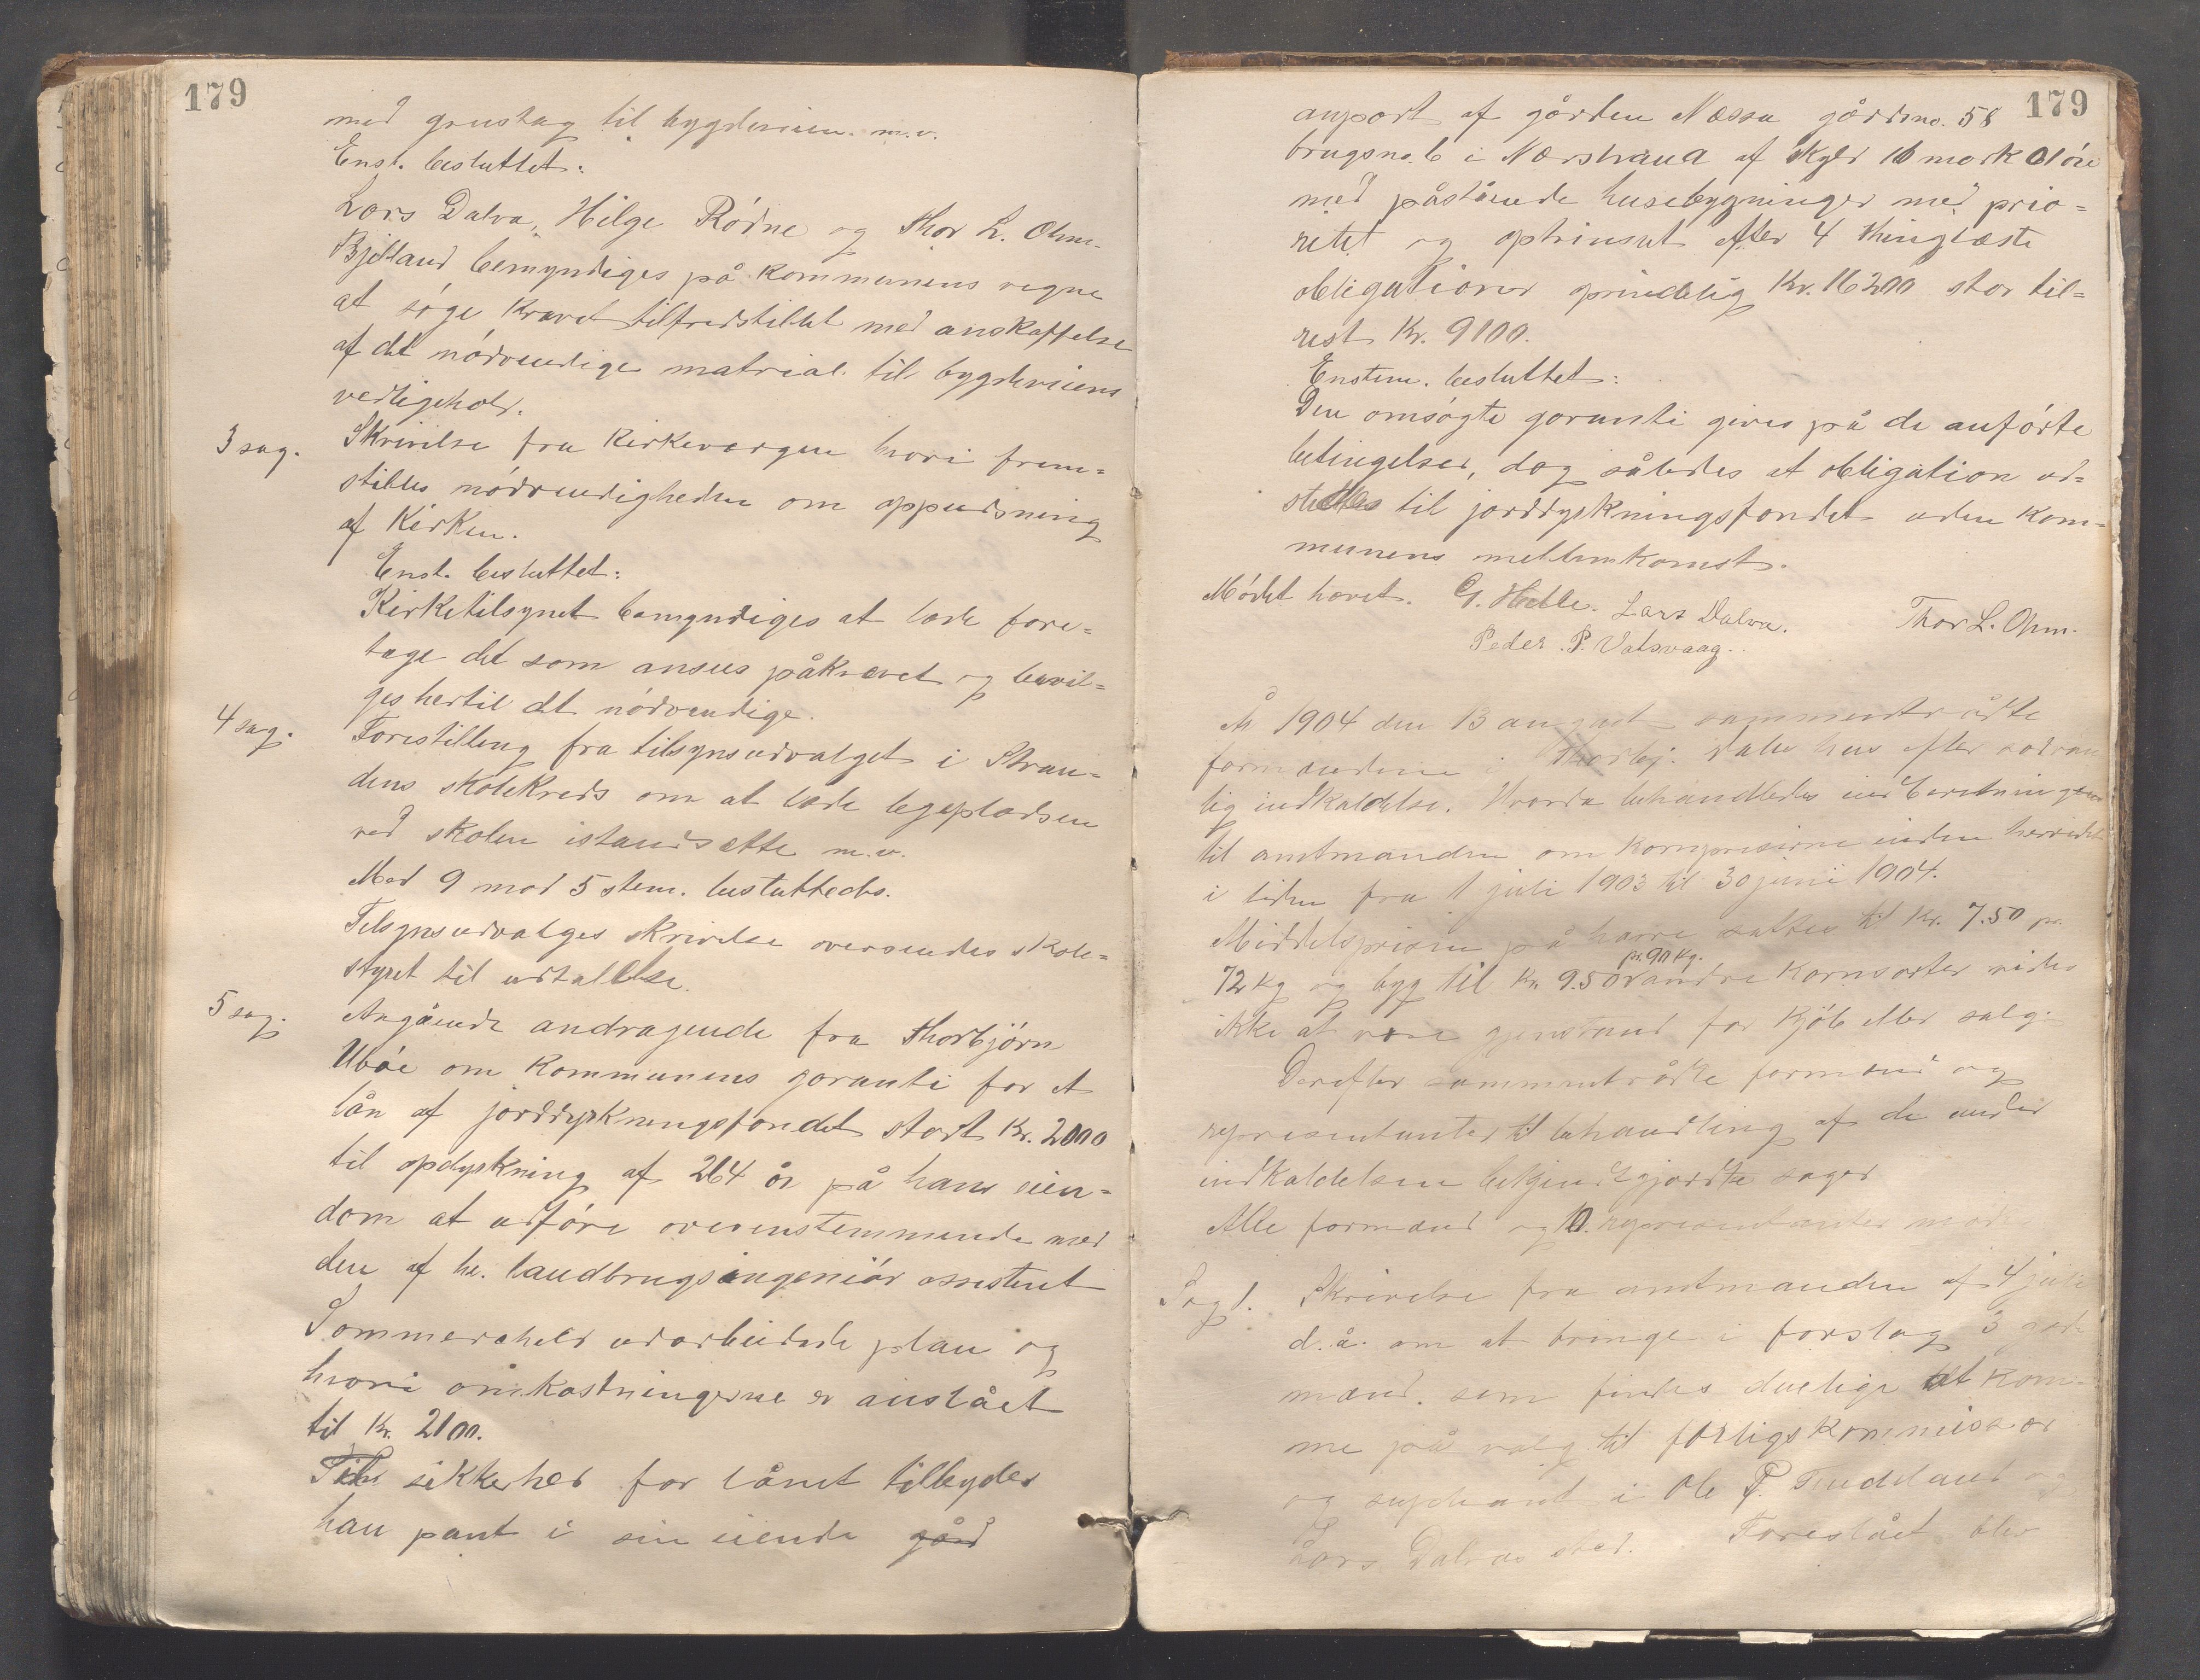 179
med grustag til bygdeveien. m.v.
Enst. besluttet:
Lars Dalva, Hilge Rödne og Thor L. Ohm-
Bjelland bemyndiges på kommunens vegne
at söge kravet tilfredstillet med anskaffelse
af det nödvendige matrial til bygdeveiens
vedligehold.
3 sag. Skrivelse fra Kirkevergen hvori frem=
stilles nödvendigheden om oppudsning
af Kirken.
Enst. besluttet:
Kirketilsynet bemyndiges at lade fore=
tage det som ansees påkrævet og bevil=
ges hertil det nödvendige.
4 sag. Forestilling fra tilsynsudvalget i Stran=
dens skolekreds om at lade legepladsen
ved skolen istandsætte m.v.
Med 9 mod 5 stem. besluttedes.
Tilsynsudvalges skrivelse oversendes skole=
styret til udtallelse.
5 sag. Angående andragende fra Thorbjörn
Uböe om kommunens garanti for et
lån af jorddyrkningsfondet stort Kr. 2000
til opdyrkning af 264 år på hans eien=
dom at udföre overensstemmende med
den af hr. landbrugsingeniör assistent
Sommerscheld udarbeidede plan og
hvori omkostningerne er anslået
til Kr. 2100.
Til sikkerhed for lånet tilbyder
han pant i sin eiende gård
179
anpart af gården Næssa gårdsno. 58
brugsno. 6 i Nærstrand af skyld 16 mark 01 öre
med påstående husebygninger med prio=
ritet og optrinsret efter 4 thinglæste
obligationer oprindelig Kr. 16200 stor til=
rest Kr. 9100.
Enstem. besluttet:
Den omsögte garanti gives på de anförte
betingelser, dog således at obligation ud=
stedes til jorddyrkningsfondet uden kom=
munens mellemkomst.
Mödet hævet. G. Helle. Lars Dalva. Thor L. Ohm.
Peder. P. Vatsvaag.
År 1904 den 13 august sammentrådte
formændene i Thorbj. Dales hus efter
lig indkaldelse. Hvorda behandledes indberetningen
til amtmanden om kornpriserne inden herredet
i tiden fra 1 juli 1903 til 30 juni 1904.
Middelsprisen på havre sattes til Kr. 7.50 pr.
72 kg og byg til Kr 9.50 pr. 90 kg. andre kornsorter vides
ikke at være gjenstand for kjöb eller salg.
Derefter sammentrådte formænd og
repræsentanter til behandling af de under
indkaldelsen bekjendtgjordte sager
Alle formænd og 10. repræsentanter mödt
Sag 1. Skrivelse fra amtmanden af 4 juli
d.å. om at bringe i forslag 3
mænd. som findes duelige at kom-
me på valg til forligskommissær
og supleant i Ole P. Tuddeland og
Lars Dalvas sted. Foreslået blev